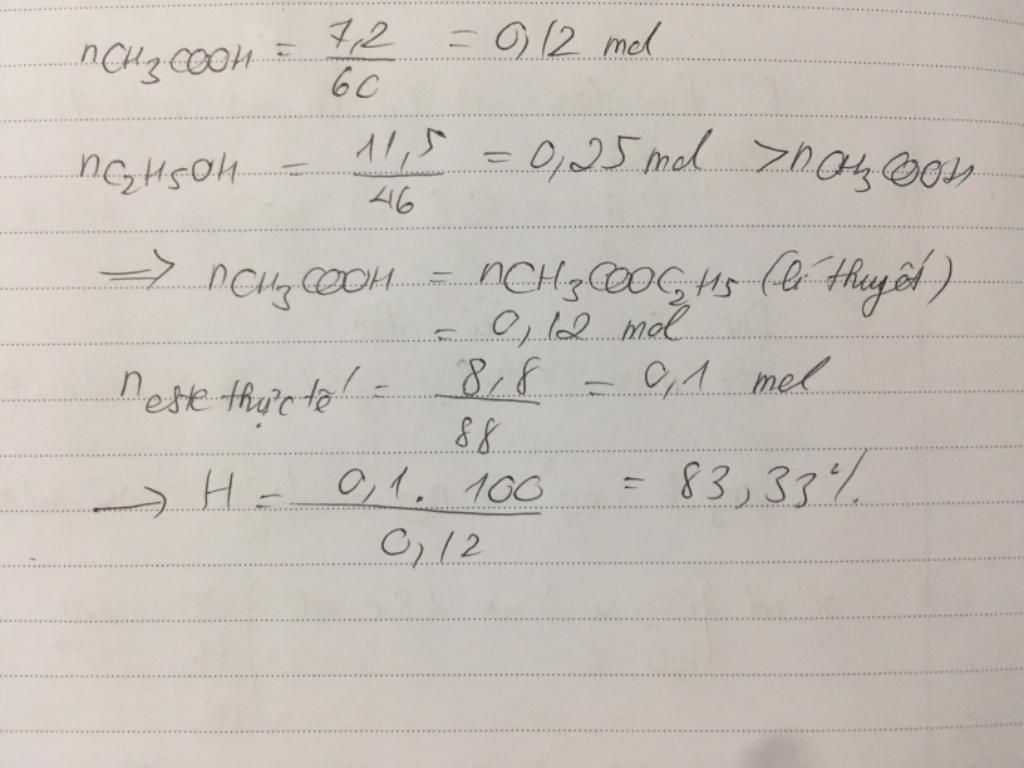 nCH3COOH = 7,2/60 = 0,12 mol
nC2H5OH = 11,5/46 = 0,25 mol > nCH3COOH
=> nCH3COOH = nCH3COOC2H5 (lí thuyết)
= 0,12 mol
n este thực tế = 8,8/88 = 0,1 mol
→ H = 0,1.100/0,12 = 83,33%